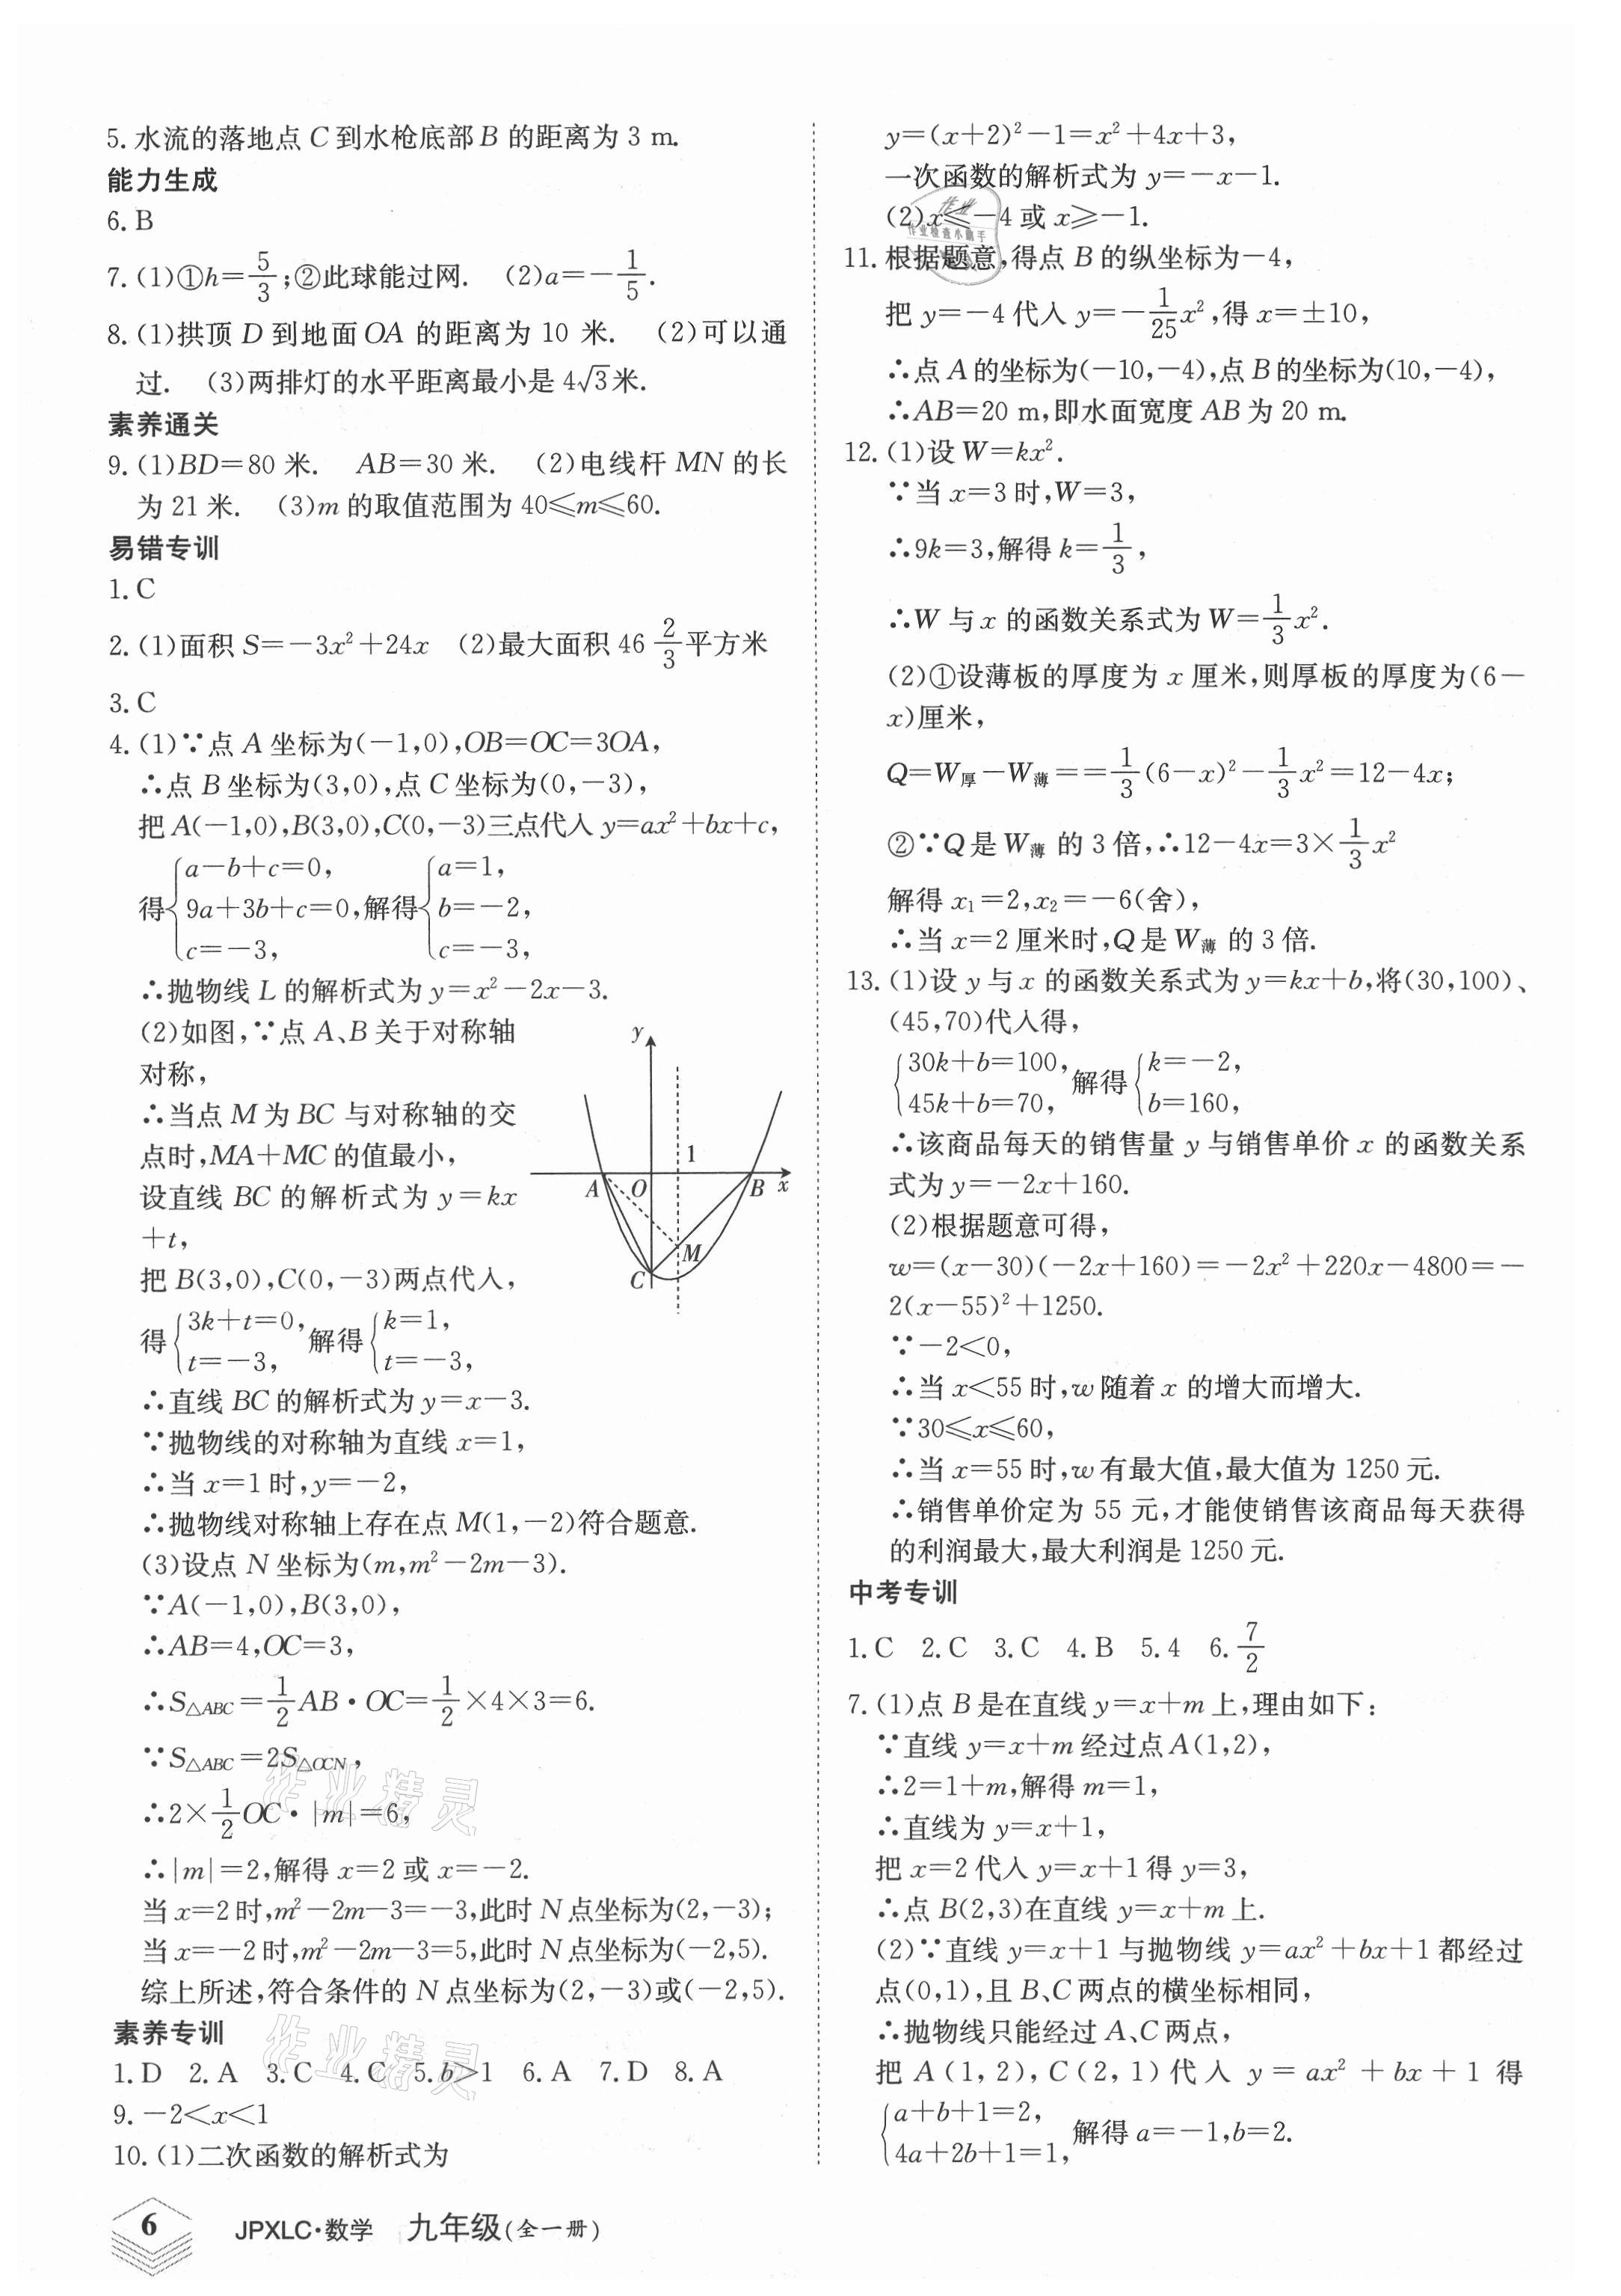 5.水流的落地点 C 到水枪底部 B 的距离为 3 m.
能力生成
6.B
7.(1)①h=5/3;②此球能过网. (2)a=-1/5.
8.(1)拱顶 D 到地面 OA 的距离为 10 米. (2)可以通
过. (3)两排灯的水平距离最小是 4√3米.
素养通关
9.(1)BD=80 米. AB=30 米. (2)电线杆 MN 的长
为 21 米. (3)m 的取值范围为 40≤m≤60.
易错专训
1.C
2.(1)面积 S=-3x²+24x (2)最大面积 46 2/3 平方米
3.C
4.(1)∵点 A 坐标为(-1,0),OB=OC=3OA,
∴点 B 坐标为(3,0),点 C 坐标为(0,-3),
把 A(-1,0),B(3,0),C(0,-3)三点代入 y=ax²+bx+c,
得{a-b+c=0, 9a+3b+c=0, c=-3, 解得{a=1, b=-2, c=-3,
∴抛物线 L 的解析式为 y=x²-2x-3.
(2)如图,∵点 A、B 关于对称轴
对称,
∴当点 M 为 BC 与对称轴的交
点时,MA+MC 的值最小,
设直线 BC 的解析式为 y=kx
+t,
把 B(3,0),C(0,-3)两点代入,
得{3k+t=0, t=-3, 解得{k=1, t=-3,
y
1
A O B x
M
C
∴直线 BC 的解析式为 y=x-3.
∵抛物线的对称轴为直线 x=1,
∴当 x=1 时,y=-2,
∴抛物线对称轴上存在点 M(1,-2)符合题意.
(3)设点 N 坐标为(m,m²-2m-3).
∵A(-1,0),B(3,0),
∴AB=4,OC=3,
∴S△ABC=1/2 AB·OC=1/2×4×3=6.
∵S△ABC=2S△OCN,
∴2×1/2 OC·|m|=6,
∴|m|=2,解得 x=2 或 x=-2.
当 x=2 时,m²-2m-3=-3,此时 N 点坐标为(2,-3);
当 x=-2 时,m²-2m-3=5,此时 N 点坐标为(-2,5).
综上所述,符合条件的 N 点坐标为(2,-3)或(-2,5).
素养专训
1.D 2.A 3.C 4.C 5.b>1 6.A 7.D 8.A
9.-2<x<1
10.(1)二次函数的解析式为
y=(x+2)²-1=x²+4x+3,
一次函数的解析式为 y=-x-1.
(2)x≤-4 或 x≥-1.
11.根据题意,得点 B 的纵坐标为-4,
把 y=-4 代入 y=-1/25 x²,得 x=±10,
∴点 A 的坐标为(-10,-4),点 B 的坐标为(10,-4),
∴AB=20 m,即水面宽度 AB 为 20 m.
12.(1)设 W=kx².
∵当 x=3 时,W=3,
∴9k=3,解得 k=1/3,
∴W 与 x 的函数关系式为 W=1/3 x².
(2)①设薄板的厚度为 x 厘米,则厚板的厚度为(6-
x)厘米,
Q=W厚-W薄==1/3(6-x)²-1/3 x²=12-4x;
②∵Q 是 W薄 的 3 倍,∴12-4x=3×1/3 x²
解得 x₁=2,x₂=-6(舍),
∴当 x=2 厘米时,Q 是 W薄 的 3 倍.
13.(1)设 y 与 x 的函数关系式为 y=kx+b,将(30,100)、
(45,70)代入得,
{30k+b=100, 45k+b=70, 解得{k=-2, b=160,
∴该商品每天的销售量 y 与销售单价 x 的函数关系
式为 y=-2x+160.
(2)根据题意可得,
w=(x-30)(-2x+160)=-2x²+220x-4800=-
2(x-55)²+1250.
∵-2<0,
∴当 x<55 时,w 随着 x 的增大而增大.
∵30≤x≤60,
∴当 x=55 时,w 有最大值,最大值为 1250 元.
∴销售单价定为 55 元,才能使销售该商品每天获得
的利润最大,最大利润是 1250 元.
中考专训
1.C 2.C 3.C 4.B 5.4 6.7/2
7.(1)点 B 是在直线 y=x+m 上,理由如下:
∵直线 y=x+m 经过点 A(1,2),
∴2=1+m,解得 m=1,
∴直线为 y=x+1,
把 x=2 代入 y=x+1 得 y=3,
∴点 B(2,3)在直线 y=x+m 上.
(2)∵直线 y=x+1 与抛物线 y=ax²+bx+1 都经过
点(0,1),且 B、C 两点的横坐标相同,
∴抛物线只能经过 A、C 两点,
把 A(1,2),C(2,1)代入 y=ax²+bx+1 得
{a+b+1=2, 4a+2b+1=1, 解得 a=-1,b=2.
作业
作业检查小助手
作业精灵
作业精灵
6 JPXLC·数学 九年级(全一册)